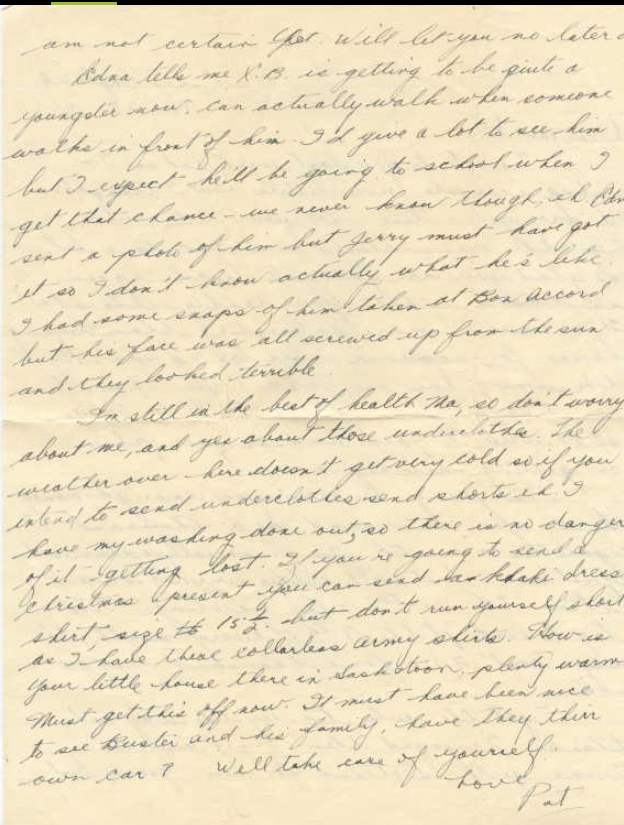 am not certain yet. Will let you no later
Edna tells me K.B. is getting to be quite a
youngster now, can actually walk when someone
walks in front of him. I'd give a lot to see him
but I expect he'll be going to school when I
get that chance - we never know though, eh Edna
sent a photo of him but Jerry must have got
it so I don't know actually what he's like.
I had some snaps of him taken at Bon Accord
but his face was all screwed up from the sun
and they looked terrible.
I'm still in the best of health Ma, so don't worry
about me, and yes about those underclothes. The
weather over here doesn't get very cold so if you
intend to send underclothes send shorts eh. I
have my washing done out, so there is no danger
of it getting lost. If you're going to send a
Christmas present you can send a khaki dress
shirt, size 15½. but don't run yourself short
as I have these collarless army shirts. How is
your little house there in Saskatoon, plenty warm
Must get this off now. It must have been nice
to see Buster and his family, have they their
own car? Well take care of yourself.
Love
Pat